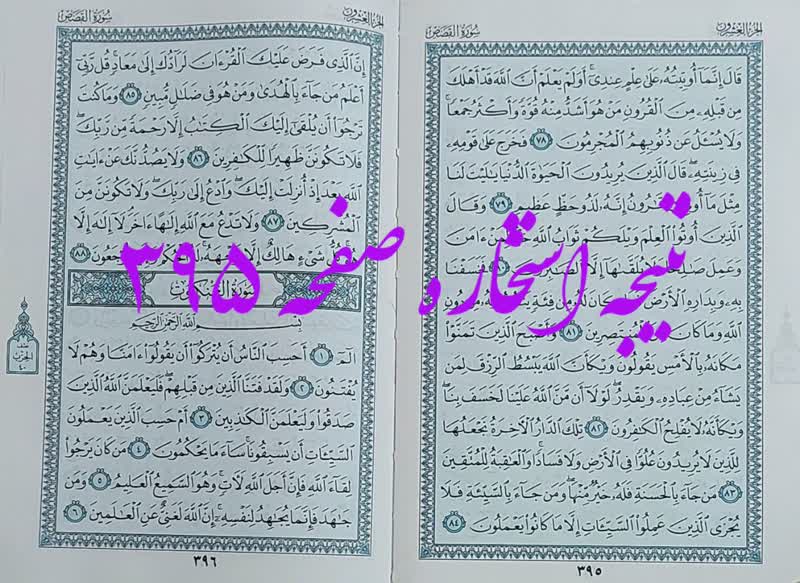 الجزء العشرون
سورة القصص
قَالَ إِنَّمَآ أُوتِيتُهُۥ عَلَىٰ عِلْمٍ عِندِىٓ ۚ أَوَلَمْ يَعْلَمْ أَنَّ ٱللَّهَ قَدْ أَهْلَكَ
مِن قَبْلِهِۦ مِنَ ٱلْقُرُونِ مَنْ هُوَ أَشَدُّ مِنْهُ قُوَّةً وَأَكْثَرُ جَمْعًا ۚ
وَلَا يُسْـَٔلُ عَن ذُنُوبِهِمُ ٱلْمُجْرِمُونَ ٧٨ فَخَرَجَ عَلَىٰ قَوْمِهِۦ
فِى زِينَتِهِۦ ۖ قَالَ ٱلَّذِينَ يُرِيدُونَ ٱلْحَيَوٰةَ ٱلدُّنْيَا يَـٰلَيْتَ لَنَا
مِثْلَ مَآ أُوتِىَ قَـٰرُونُ إِنَّهُۥ لَذُو حَظٍّ عَظِيمٍ ٧٩ وَقَالَ
ٱلَّذِينَ أُوتُوا۟ ٱلْعِلْمَ وَيْلَكُمْ ثَوَابُ ٱللَّهِ خَيْرٌ لِّمَنْ ءَامَنَ
وَعَمِلَ صَـٰلِحًا وَلَا يُلَقَّىٰهَآ إِلَّا ٱلصَّـٰبِرُونَ ٨٠ فَخَسَفْنَا
بِهِۦ وَبِدَارِهِ ٱلْأَرْضَ فَمَا كَانَ لَهُۥ مِن فِئَةٍ يَنصُرُونَهُۥ مِن دُونِ
ٱللَّهِ وَمَا كَانَ مِنَ ٱلْمُنتَصِرِينَ ٨١ وَأَصْبَحَ ٱلَّذِينَ تَمَنَّوْا۟
مَكَانَهُۥ بِٱلْأَمْسِ يَقُولُونَ وَيْكَأَنَّ ٱللَّهَ يَبْسُطُ ٱلرِّزْقَ لِمَن
يَشَآءُ مِنْ عِبَادِهِۦ وَيَقْدِرُ ۖ لَوْلَآ أَن مَّنَّ ٱللَّهُ عَلَيْنَا لَخَسَفَ بِنَا ۖ
وَيْكَأَنَّهُۥ لَا يُفْلِحُ ٱلْكَـٰفِرُونَ ٨٢ تِلْكَ ٱلدَّارُ ٱلْـَٔاخِرَةُ نَجْعَلُهَا
لِلَّذِينَ لَا يُرِيدُونَ عُلُوًّا فِى ٱلْأَرْضِ وَلَا فَسَادًا ۚ وَٱلْعَـٰقِبَةُ لِلْمُتَّقِينَ
٨٣ مَن جَآءَ بِٱلْحَسَنَةِ فَلَهُۥ خَيْرٌ مِّنْهَا ۖ وَمَن جَآءَ بِٱلسَّيِّئَةِ فَلَا
يُجْزَى ٱلَّذِينَ عَمِلُوا۟ ٱلسَّيِّـَٔاتِ إِلَّا مَا كَانُوا۟ يَعْمَلُونَ ٨٤
٣٩٥
الجزء العشرون
سورة القصص
إِنَّ ٱلَّذِى فَرَضَ عَلَيْكَ ٱلْقُرْءَانَ لَرَآدُّكَ إِلَىٰ مَعَادٍ ۚ قُل رَّبِّىٓ
أَعْلَمُ مَن جَآءَ بِٱلْهُدَىٰ وَمَنْ هُوَ فِى ضَلَـٰلٍ مُّبِينٍ ٨٥ وَمَا كُنتَ
تَرْجُوٓا۟ أَن يُلْقَىٰٓ إِلَيْكَ ٱلْكِتَـٰبُ إِلَّا رَحْمَةً مِّن رَّبِّكَ ۖ
فَلَا تَكُونَنَّ ظَهِيرًا لِّلْكَـٰفِرِينَ ٨٦ وَلَا يَصُدُّنَّكَ عَنْ ءَايَـٰتِ
ٱللَّهِ بَعْدَ إِذْ أُنزِلَتْ إِلَيْكَ ۖ وَٱدْعُ إِلَىٰ رَبِّكَ ۖ وَلَا تَكُونَنَّ مِنَ
ٱلْمُشْرِكِينَ ٨٧ وَلَا تَدْعُ مَعَ ٱللَّهِ إِلَـٰهًا ءَاخَرَ ۘ لَآ إِلَـٰهَ إِلَّا
هُوَ ۚ كُلُّ شَىْءٍ هَالِكٌ إِلَّا وَجْهَهُۥ ۚ لَهُ ٱلْحُكْمُ وَإِلَيْهِ تُرْجَعُونَ ٨٨
سورة العنكبوت
بِسْمِ ٱللَّهِ ٱلرَّحْمَـٰنِ ٱلرَّحِيمِ
الٓمٓ ١ أَحَسِبَ ٱلنَّاسُ أَن يُتْرَكُوٓا۟ أَن يَقُولُوٓا۟ ءَامَنَّا وَهُمْ لَا
يُفْتَنُونَ ٢ وَلَقَدْ فَتَنَّا ٱلَّذِينَ مِن قَبْلِهِمْ ۖ فَلَيَعْلَمَنَّ ٱللَّهُ ٱلَّذِينَ
صَدَقُوا۟ وَلَيَعْلَمَنَّ ٱلْكَـٰذِبِينَ ٣ أَمْ حَسِبَ ٱلَّذِينَ يَعْمَلُونَ
ٱلسَّيِّـَٔاتِ أَن يَسْبِقُونَا ۚ سَآءَ مَا يَحْكُمُونَ ٤ مَن كَانَ يَرْجُوا۟
لِقَآءَ ٱللَّهِ فَإِنَّ أَجَلَ ٱللَّهِ لَـَٔاتٍ ۚ وَهُوَ ٱلسَّمِيعُ ٱلْعَلِيمُ ٥ وَمَن
جَـٰهَدَ فَإِنَّمَا يُجَـٰهِدُ لِنَفْسِهِۦٓ ۚ إِنَّ ٱللَّهَ لَغَنِىٌّ عَنِ ٱلْعَـٰلَمِينَ ٦
٣٩٦
نتیجه استخاره صفحه ۳۹۵